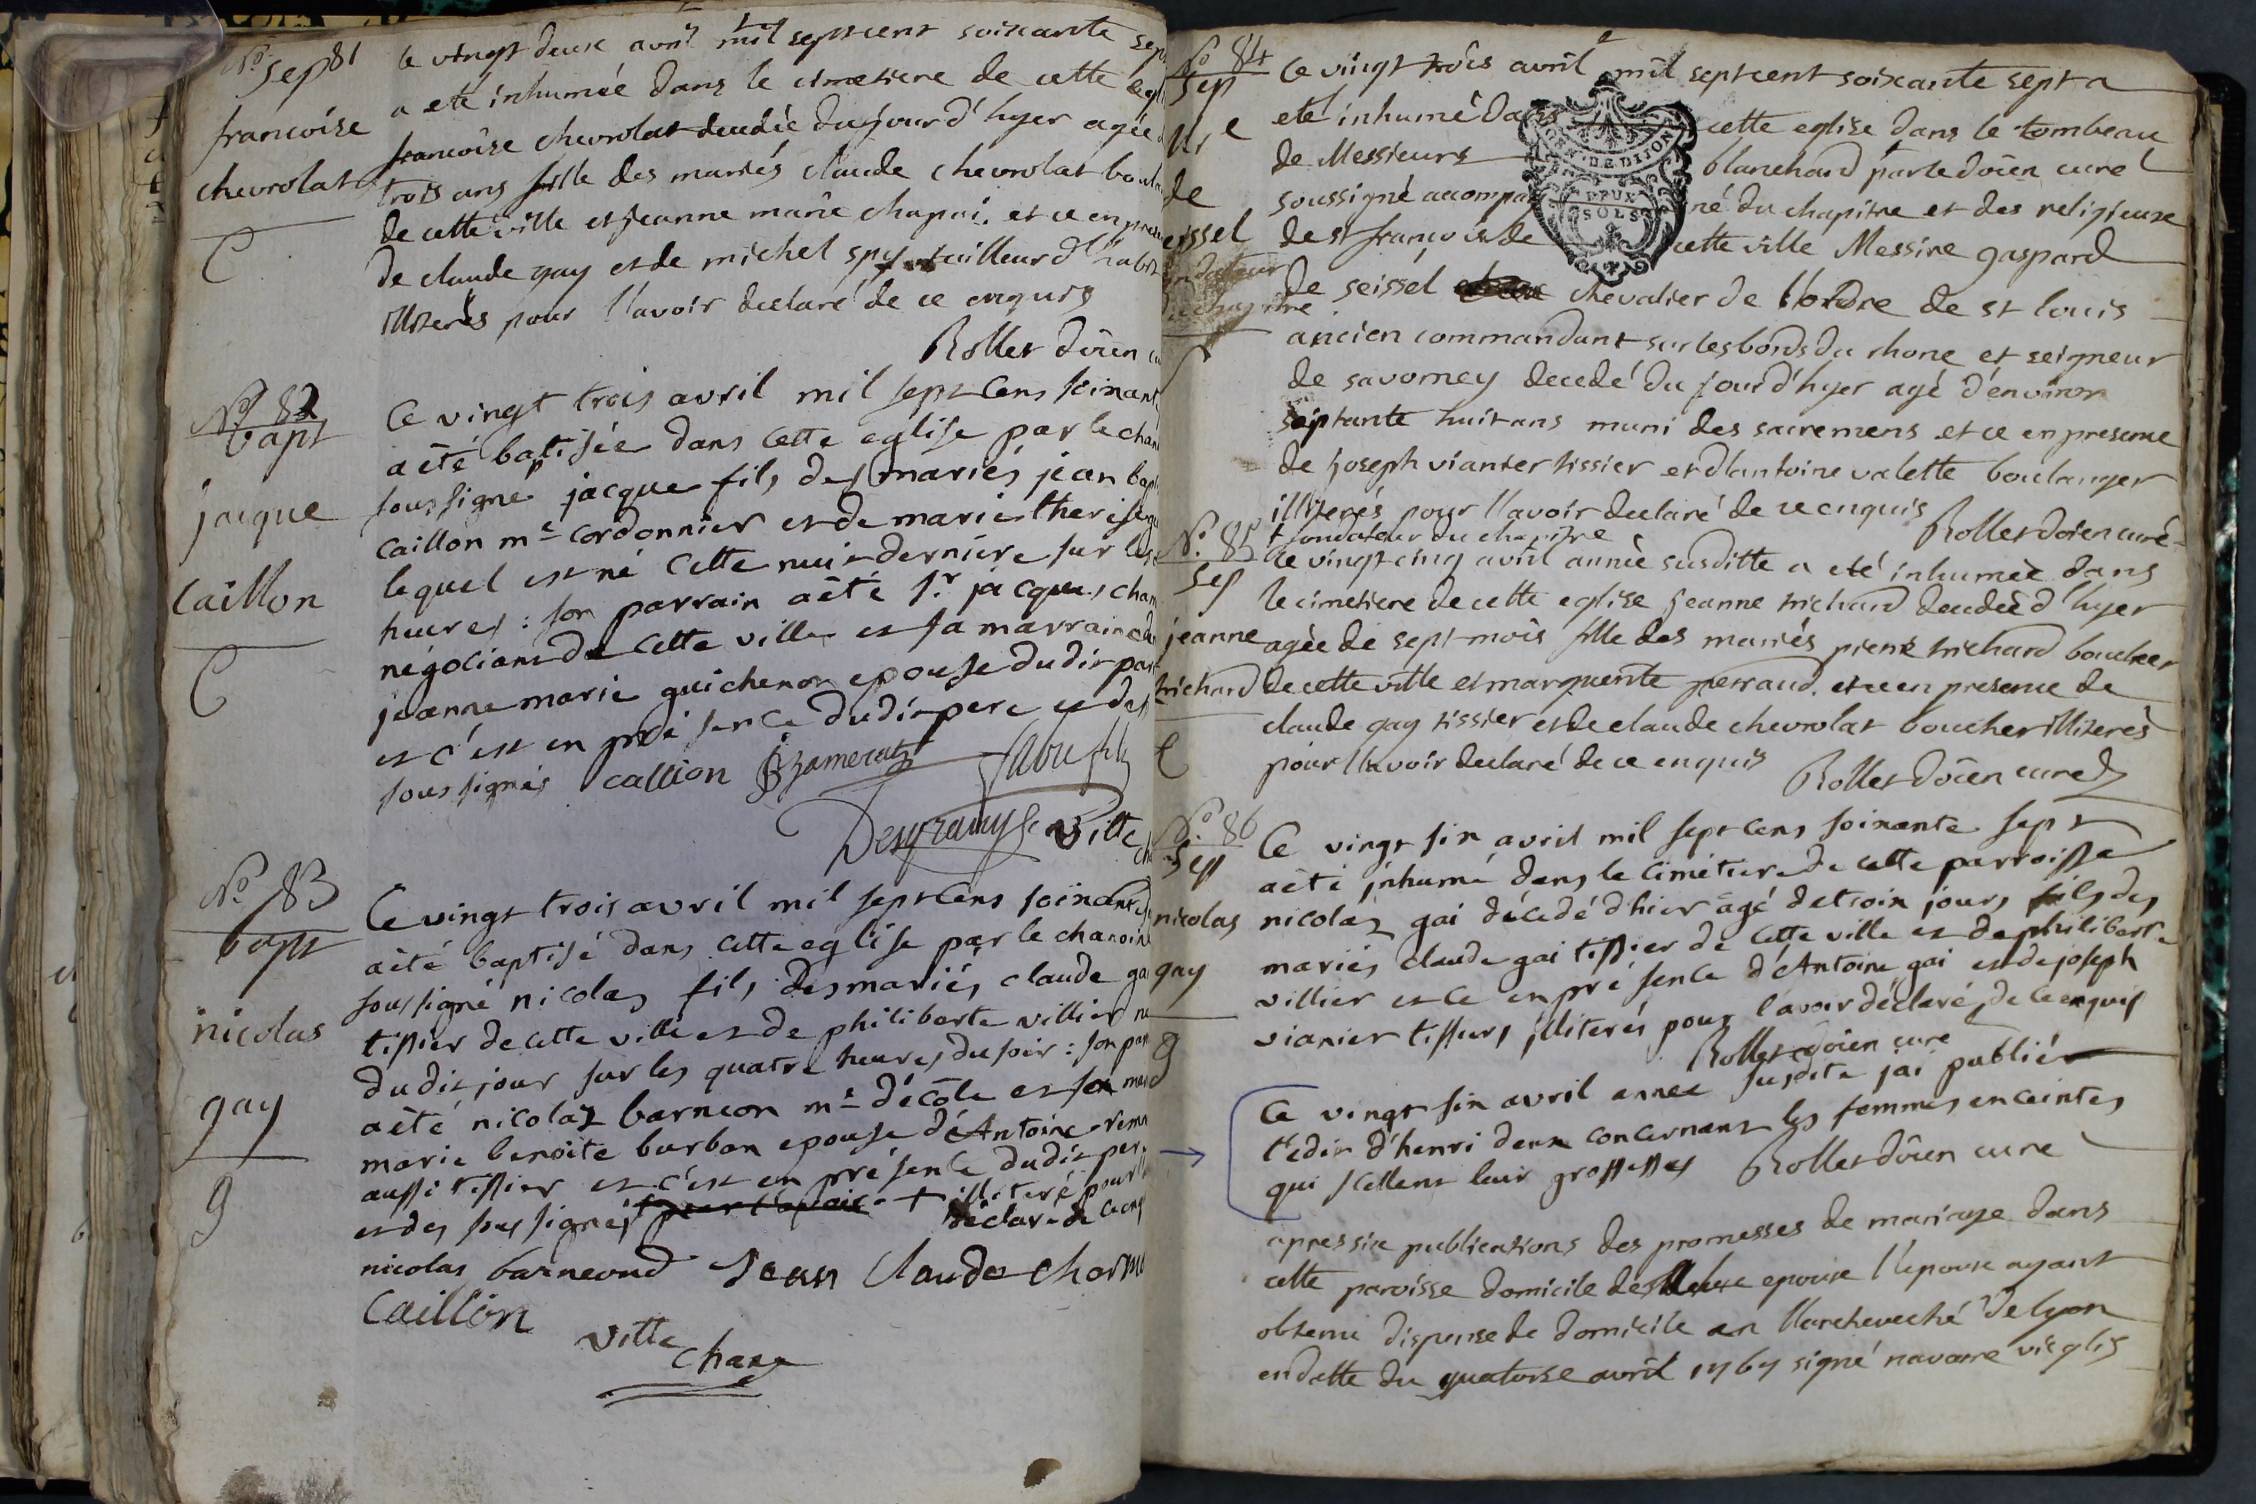 No 81
sep
francoise
chevrolat
C
le vingt deux avril mil sept cent soixante sep
a eté inhumée dans le cimetiere de cette egli
francoise chevrolat decedée du jour d'hyer agée d
trois ans fille des mariés claude chevrolat boul
de cette ville et jeanne marie chapui. et ce en pre
de claude gay et de michel spy tailleur d'habit
illiterés pour l'avoir declaré de ce enquis
Rollet doïen cu
No 82
bapt
jacque
Caillon
C
Ce vingt trois avril mil sept Cens soixant
a été batisée dans cette eglise par le chan
soussigné jacque fils des mariés jean bapt
Caillon me cordonnier et de marie therese
lequel est né cette nuit derniere sur les
heures : son parrain a été sr. jacques chan
négociant de cette ville et sa marraine d
jeanne marie guichenon epouse dudit par
et c'est en présence dudit pere et des
soussignés callion
Desfrancs Ville
No 83
bapt
nicolas
gay
g
Ce vingt trois avril mil sept Cens soixante
a été baptisé dans cette eglise par le chanoine
soussigné nicolas fils des mariés claude ga
tissier de cette ville et de philiberte villier n
dudit jour sur les quatre heures du soir : son par
a été nicolas barneon me d'école et sa mar
marie benoite burban epouse d'Antoine remo
aussi tissier et c'est en présence dudit per
et des soussignés pour l'avoir + illiteré pour l
déclaré de ce enq
nicolas barneoud Jean Claude Charm
Caillon
Ville
Chan
No 84
sep
Mre
de
seissel
fondateur
du chapitre
Ce vingt trois avril mil sept cent soixante sept a
eté inhumé dans cette eglise dans le tombeau
de Messieurs blanchard par le doïen curé
soussigné accompagné du chapitre et des religieuse
de st françois de cette ville Messire gaspard
de seissel chevalier de l'ordre de st louis
ancien commandant sur les bords du rhone et seigneur
de savorney decedé du jour d'hyer agé d'environ
septante huit ans muni des sacremens et ce en presence
de joseph vianier tissier et d'antoine valette boulanger
illiterés pour l'avoir declaré de ce enquis Rollet doïen curé
+ fondateur du chapitre
GEN. DE DIJON
DEUX
SOLS
No. 85
sep
jeanne
trichard
C
Ce vingt cinq avril année susditte a eté inhumée dans
le cimetiere de cette eglise jeanne trichard decedée d'hyer
agée de sept mois fille des mariés pierre trichard boucher
de cette ville et marguerite perraud. et ce en presence de
claude gay tissier et de claude chevrolat boucher illiterés
pour l'avoir declaré de ce enquis Rollet doïen curé
No 86
sep
nicolas
gay
g
Ce vingt six avril mil sept cens soixante sept
a été inhumé dans le cimétiere de cette parroisse
nicolas gai décédé d'hier âgé de trois jours fils des
mariés claude gai tissier de cette ville et de philiberte
villier et ce en présence d'Antoine gai et de joseph
vianier tisseurs illiterés pour l'avoir déclaré de ce enquis
Rollet doïen curé
Ce vingt six avril année susdite j'ai publié
l'edit d'henri deux concernant les femmes enceintes
qui scellent leur grossesses Rollet doïen curé
apres six publications des promesses de mariage dans
cette paroisse domicile de epouse l'epouse ayant
obtenu dispense de domicile en l'archeveché de lyon
en datte du quatorse avril 1767 signé navarre vic glis